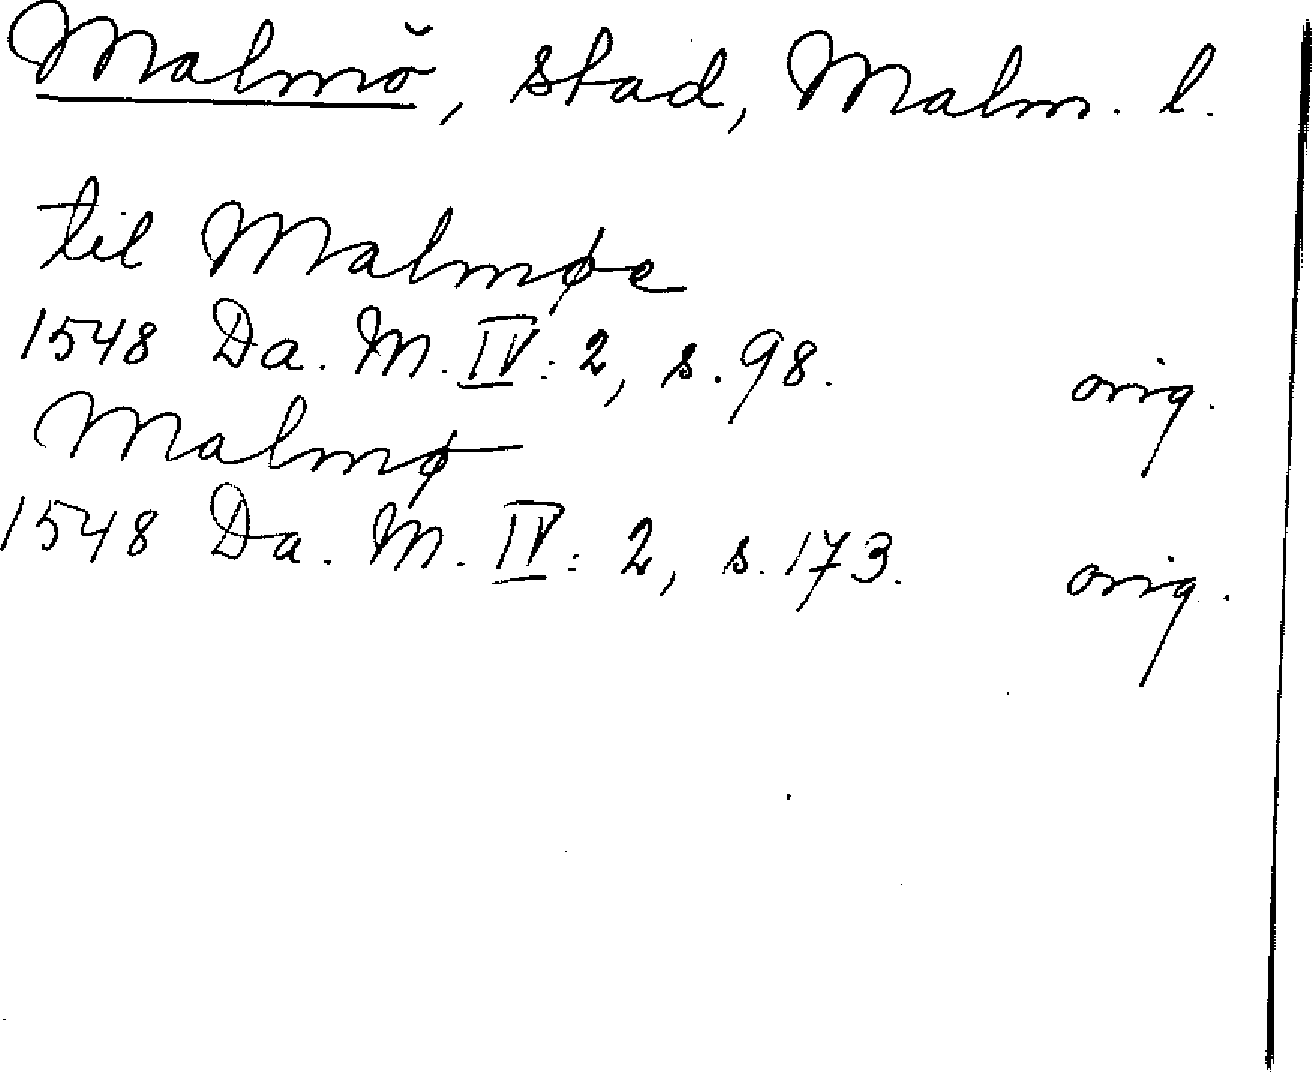 Malmö, stad, Malm. l.
til Malmøe
1548 Da. M. IV: 2, s. 98. orig.
Malmø
1548 Da. M. IV: 2, s. 173. orig.